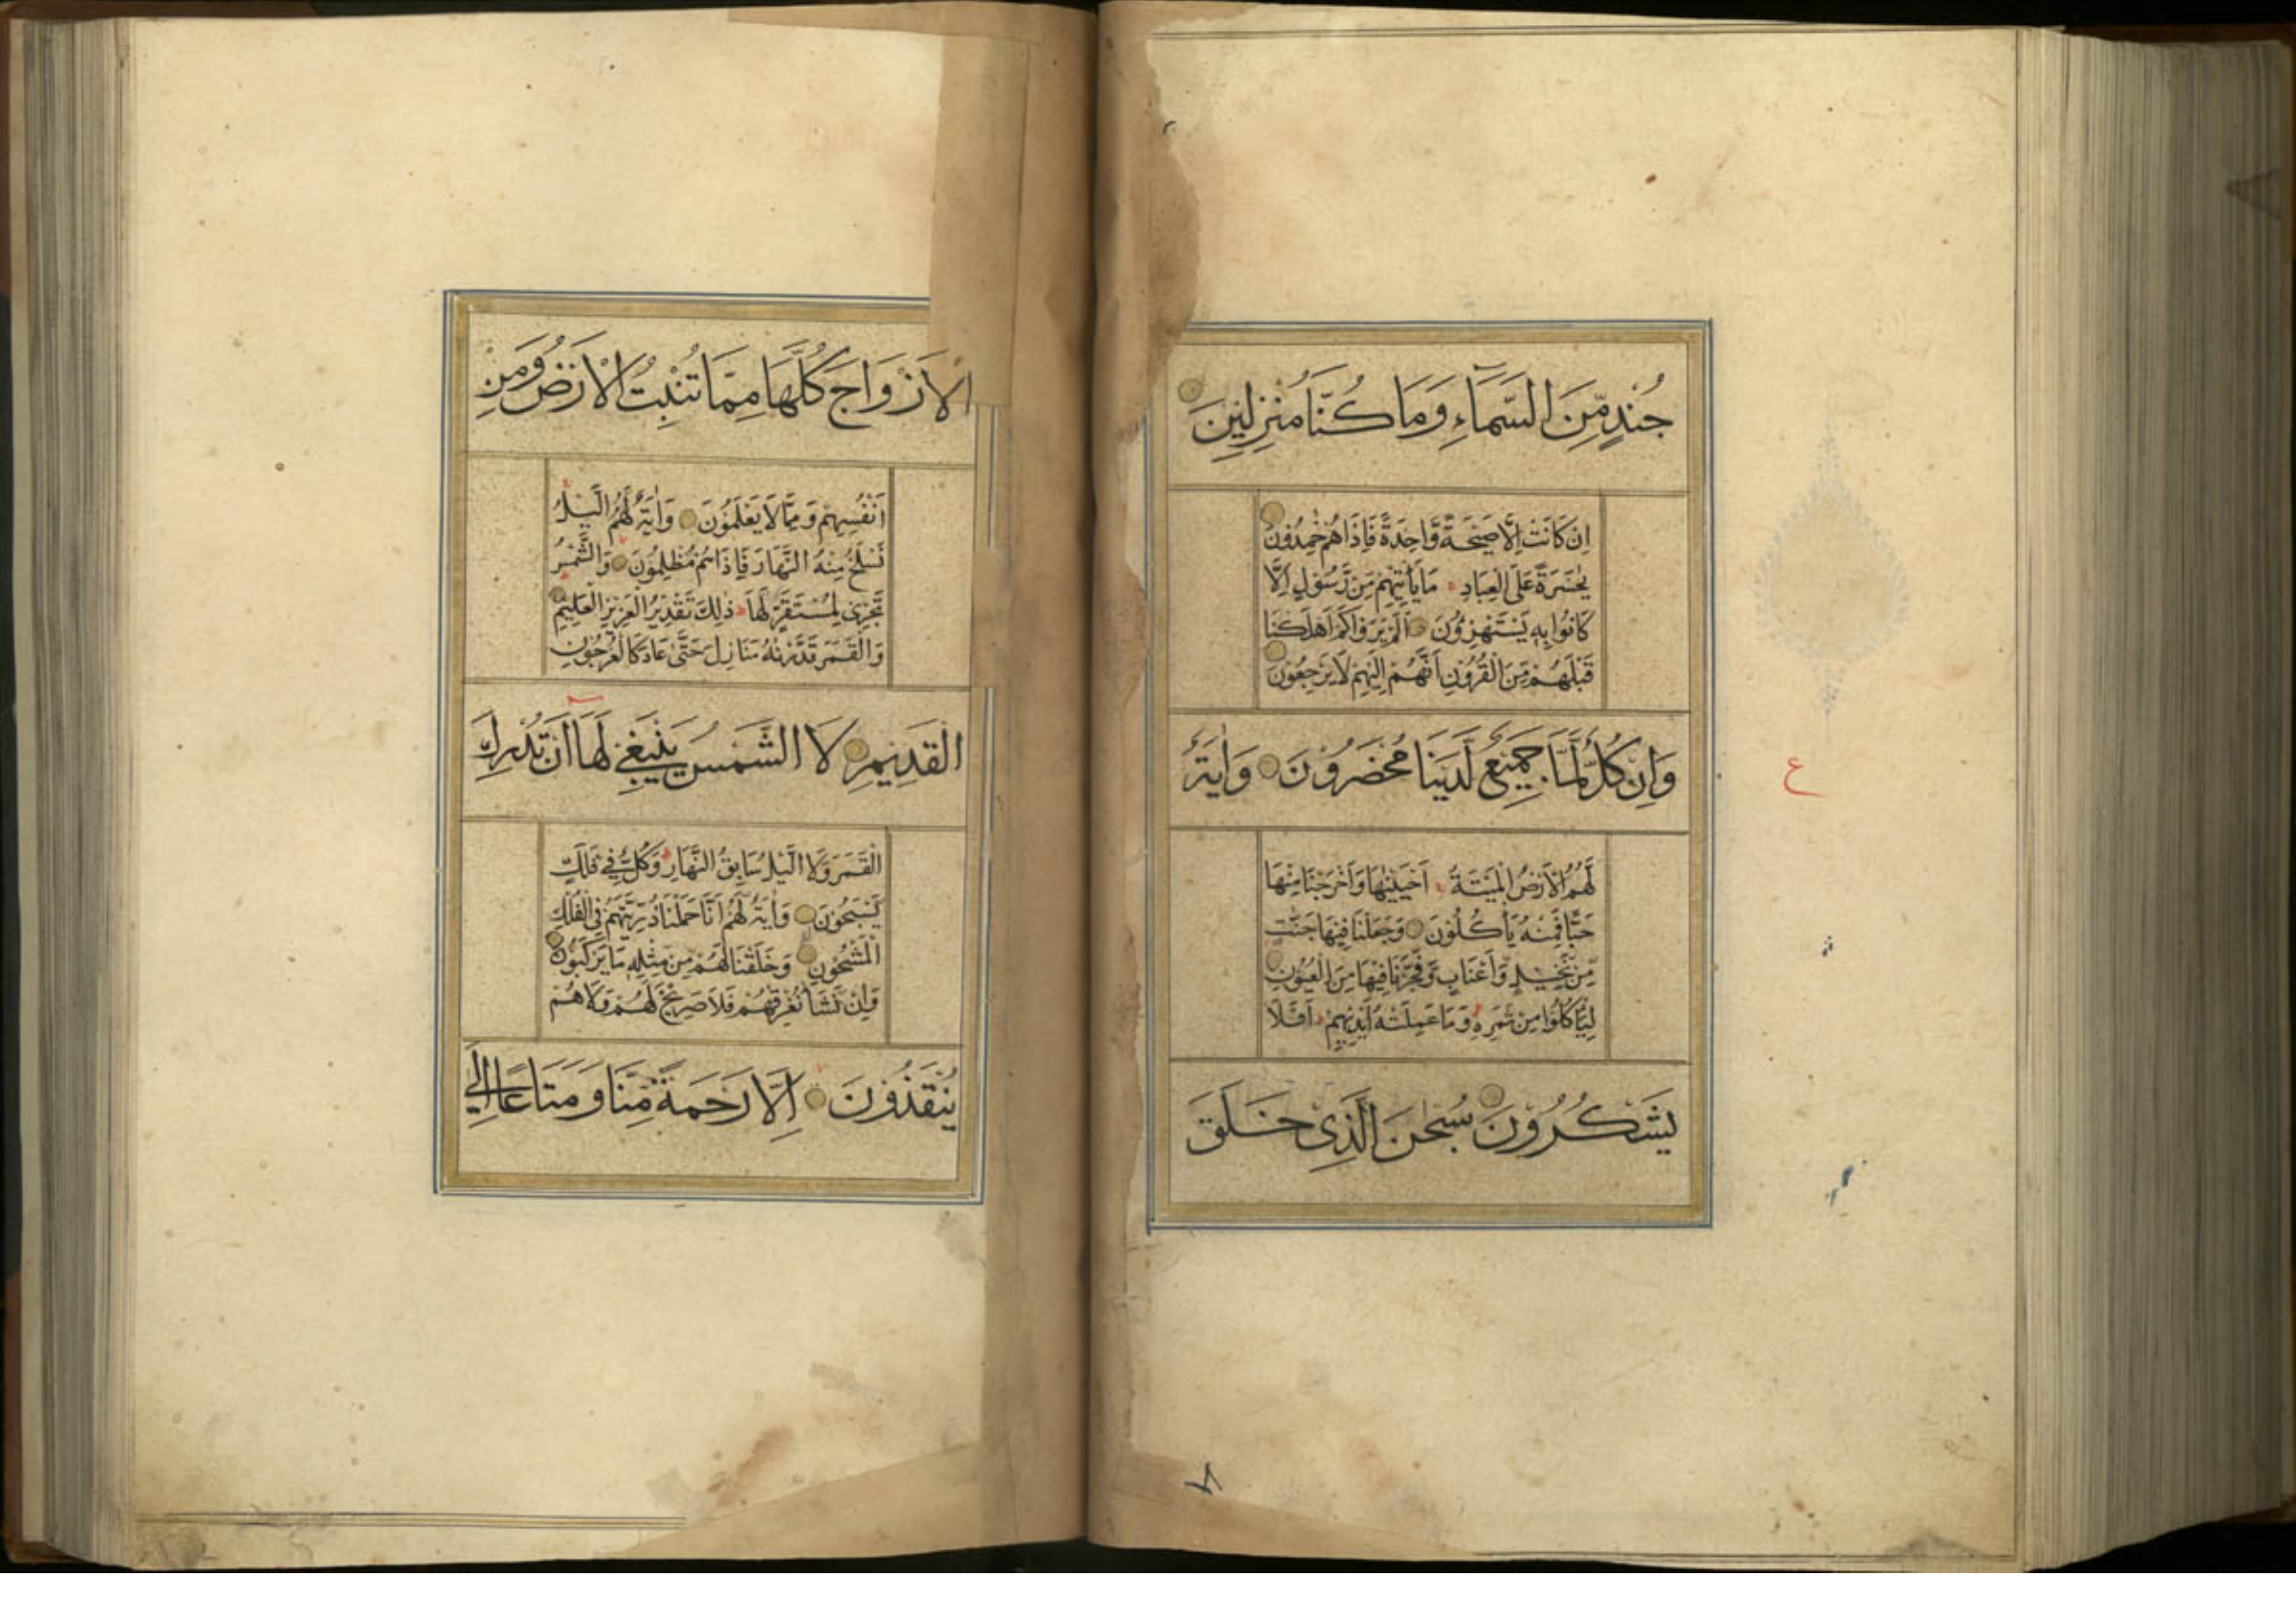 جُندٍ مِّنَ السَّمَآءِ وَمَا كُنَّا مُنْزِلِينَ
اِنْ كَانَتْ اِلَّا صَيْحَةً وَّاحِدَةً فَاِذَا هُمْ خٰمِدُوْنَ
يٰحَسْرَةً عَلَى الْعِبَادِ مَا يَأْتِيْهِمْ مِّنْ رَّسُوْلٍ اِلَّا
كَانُوْا بِهٖ يَسْتَهْزِؤُنَ اَلَمْ يَرَوْا كَمْ اَهْلَكْنَا
قَبْلَهُمْ مِّنَ الْقُرُوْنِ اَنَّهُمْ اِلَيْهِمْ لَا يَرْجِعُوْنَ
وَاِنْ كُلٌّ لَّمَّا جَمِيْعٌ لَّدَيْنَا مُحْضَرُوْنَ وَاٰيَةٌ
ع
لَّهُمُ الْاَرْضُ الْمَيْتَةُ اَحْيَيْنٰهَا وَاَخْرَجْنَا مِنْهَا
حَبًّا فَمِنْهُ يَأْكُلُوْنَ وَجَعَلْنَا فِيْهَا جَنّٰتٍ
مِّنْ نَّخِيْلٍ وَّاَعْنَابٍ وَّفَجَّرْنَا فِيْهَا مِنَ الْعُيُوْنِ
لِيَأْكُلُوْا مِنْ ثَمَرِهٖ وَمَا عَمِلَتْهُ اَيْدِيْهِمْ اَفَلَا
يَشْكُرُوْنَ سُبْحٰنَ الَّذِىْ خَلَقَ
الْاَزْوَاجَ كُلَّهَا مِمَّا تُنْبِتُ الْاَرْضُ وَمِنْ
اَنْفُسِهِمْ وَمِمَّا لَا يَعْلَمُوْنَ وَاٰيَةٌ لَّهُمُ الَّيْلُ
نَسْلَخُ مِنْهُ النَّهَارَ فَاِذَا هُمْ مُّظْلِمُوْنَ وَالشَّمْسُ
تَجْرِىْ لِمُسْتَقَرٍّ لَّهَا ذٰلِكَ تَقْدِيْرُ الْعَزِيْزِ الْعَلِيْمِ
وَالْقَمَرَ قَدَّرْنٰهُ مَنَازِلَ حَتّٰى عَادَ كَالْعُرْجُوْنِ
الْقَدِيْمِ لَا الشَّمْسُ يَنْبَغِىْ لَهَا اَنْ تُدْرِكَ
الْقَمَرَ وَلَا الَّيْلُ سَابِقُ النَّهَارِ وَكُلٌّ فِىْ فَلَكٍ
يَّسْبَحُوْنَ وَاٰيَةٌ لَّهُمْ اَنَّا حَمَلْنَا ذُرِّيَّتَهُمْ فِى الْفُلْكِ
الْمَشْحُوْنِ وَخَلَقْنَا لَهُمْ مِّنْ مِّثْلِهٖ مَا يَرْكَبُوْنَ
وَاِنْ نَّشَأْ نُغْرِقْهُمْ فَلَا صَرِيْخَ لَهُمْ وَلَا هُمْ
يُنْقَذُوْنَ اِلَّا رَحْمَةً مِّنَّا وَمَتَاعًا اِلٰى